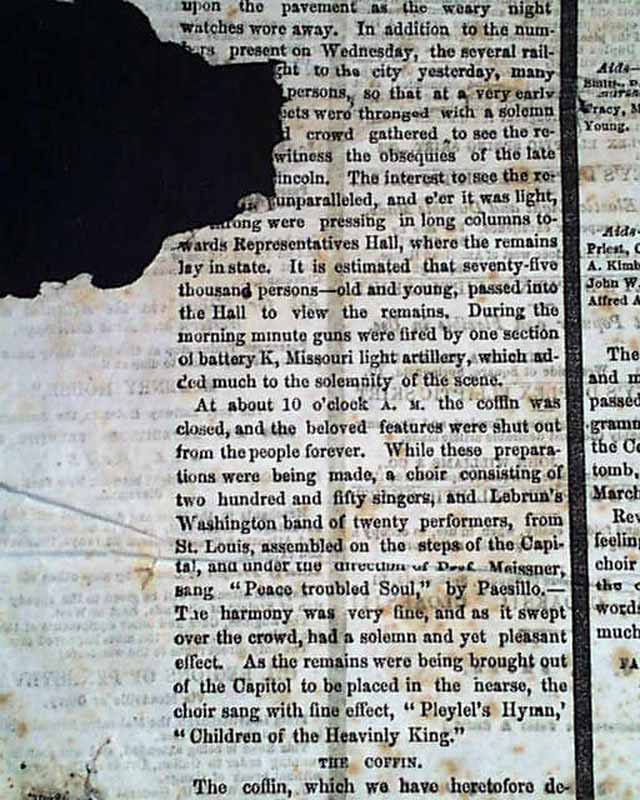 upon the pavement as the weary night
watches wore away. In addition to the num-
bers present on Wednesday, the several rail-
ght to the city yesterday, many
persons, so that at a very early
ects were thronged with a solemn
d crowd gathered to see the re-
witness the obsequies of the late
incoln. The interest to see the re-
unparalleled, and e'er it was light,
hrong were pressing in long columns to-
wards Representatives Hall, where the remains
lay in state. It is estimated that seventy-five
thousand persons—old and young, passed into
the Hall to view the remains. During the
morning minute guns were fired by one section
of battery K, Missouri light artillery, which ad-
ded much to the solemnity of the scene.
At about 10 o'clock A. M. the coffin was
closed, and the beloved features were shut out
from the people forever. While these prepara-
tions were being made, a choir consisting of
two hundred and fifty singers, and Lebrun's
Washington band of twenty performers, from
St. Louis, assembled on the steps of the Capi-
tal, and under the direction of Prof. Meissner,
sang "Peace troubled Soul," by Paesillo.—
The harmony was very fine, and as it swept
over the crowd, had a solemn and yet pleasant
effect. As the remains were being brought out
of the Capitol to be placed in the hearse, the
choir sang with fine effect, "Pleylel's Hymn,'
"Children of the Heavinly King."
THE COFFIN.
The coffin, which we have heretofore de-
Aids—
Tracy, M
Young.
Aids-
Priest, C
A. Kimb
John W.
Alfred A
The
and m
passed
gramm
the Co
tomb,
March
Rev
feeling
choir
the
words
much
FA